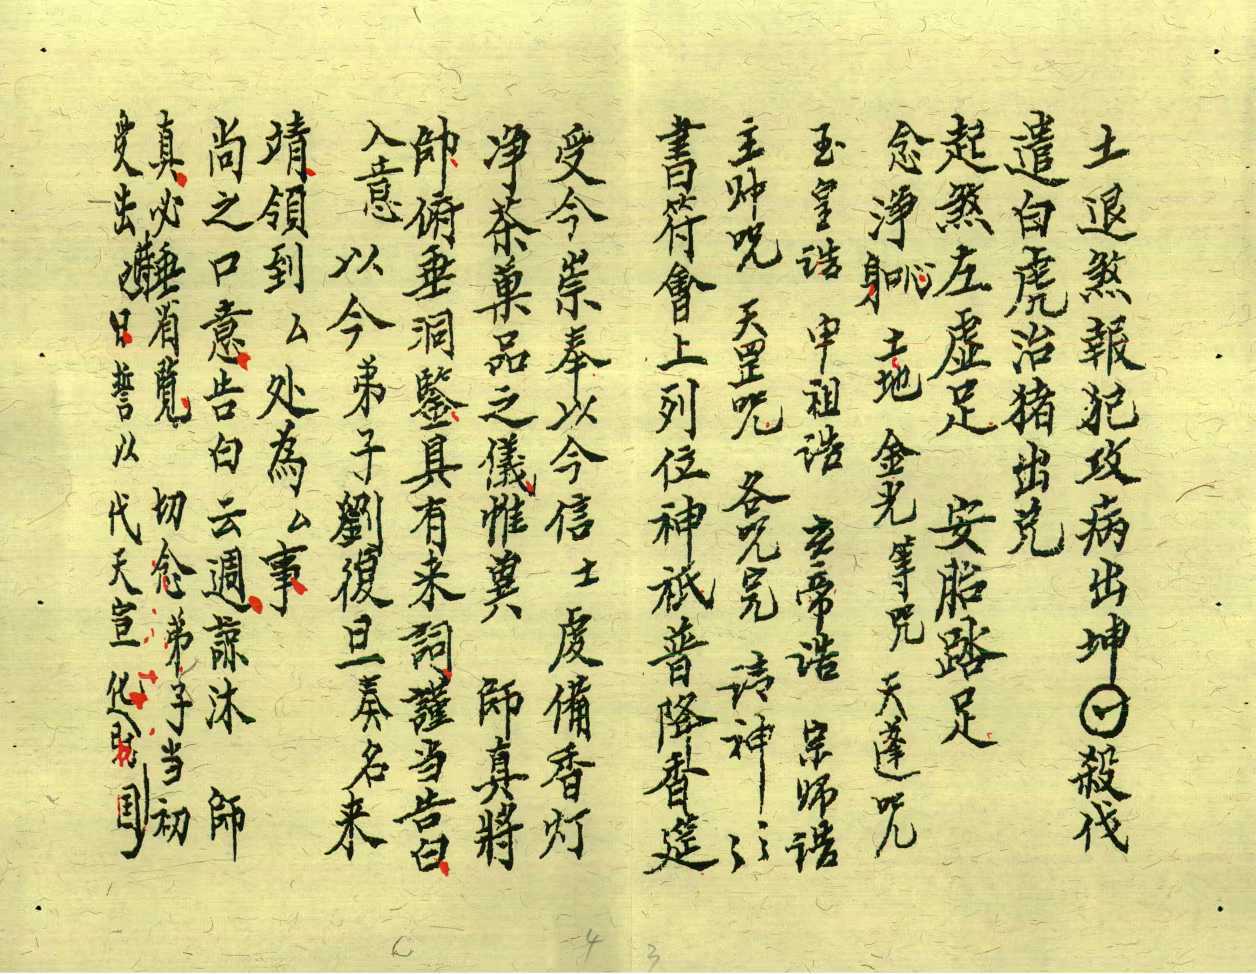 土退煞報犯攻病出坤 殺伐
遣白虎治猪出兑
起煞左虚足 安胎踏足
念淨身 土地 金光等咒 天蓬咒
玉皇誥 申祖誥 玄帝誥 宗师誥
主帅咒 天罡咒 各咒完 請神
書符會上列位神祇普降香筵
受今崇奉以今信士虔備香灯
净茶菓品之儀惟冀 師真將
帥俯垂洞鑒具有来詞謹当告白
入意 以今弟子劉復旦奏名来
靖領到厶处為厶事
尚之口意告白云週諒沐 師
真必垂省覧 切念弟子当初
受出 日誓以代天宣化